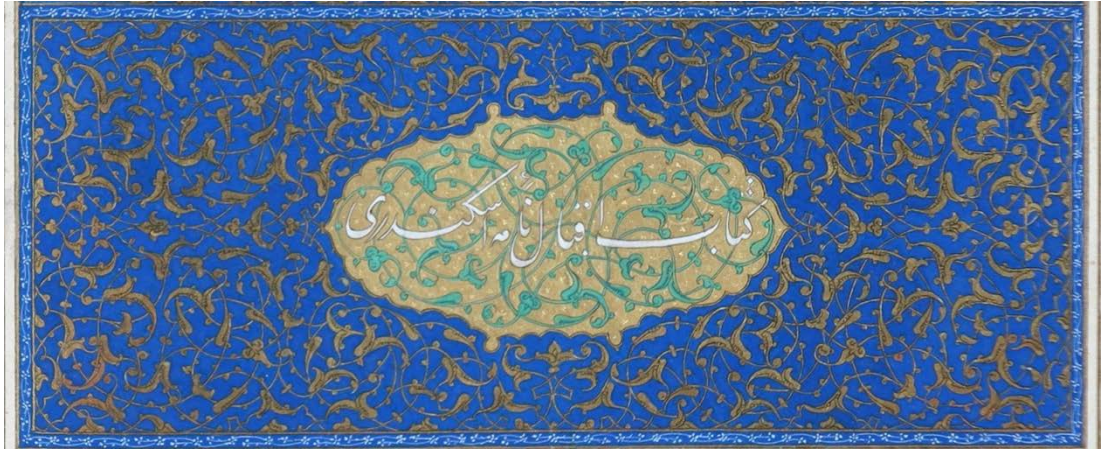 کتاب اقبال نامهٔ اسکندری